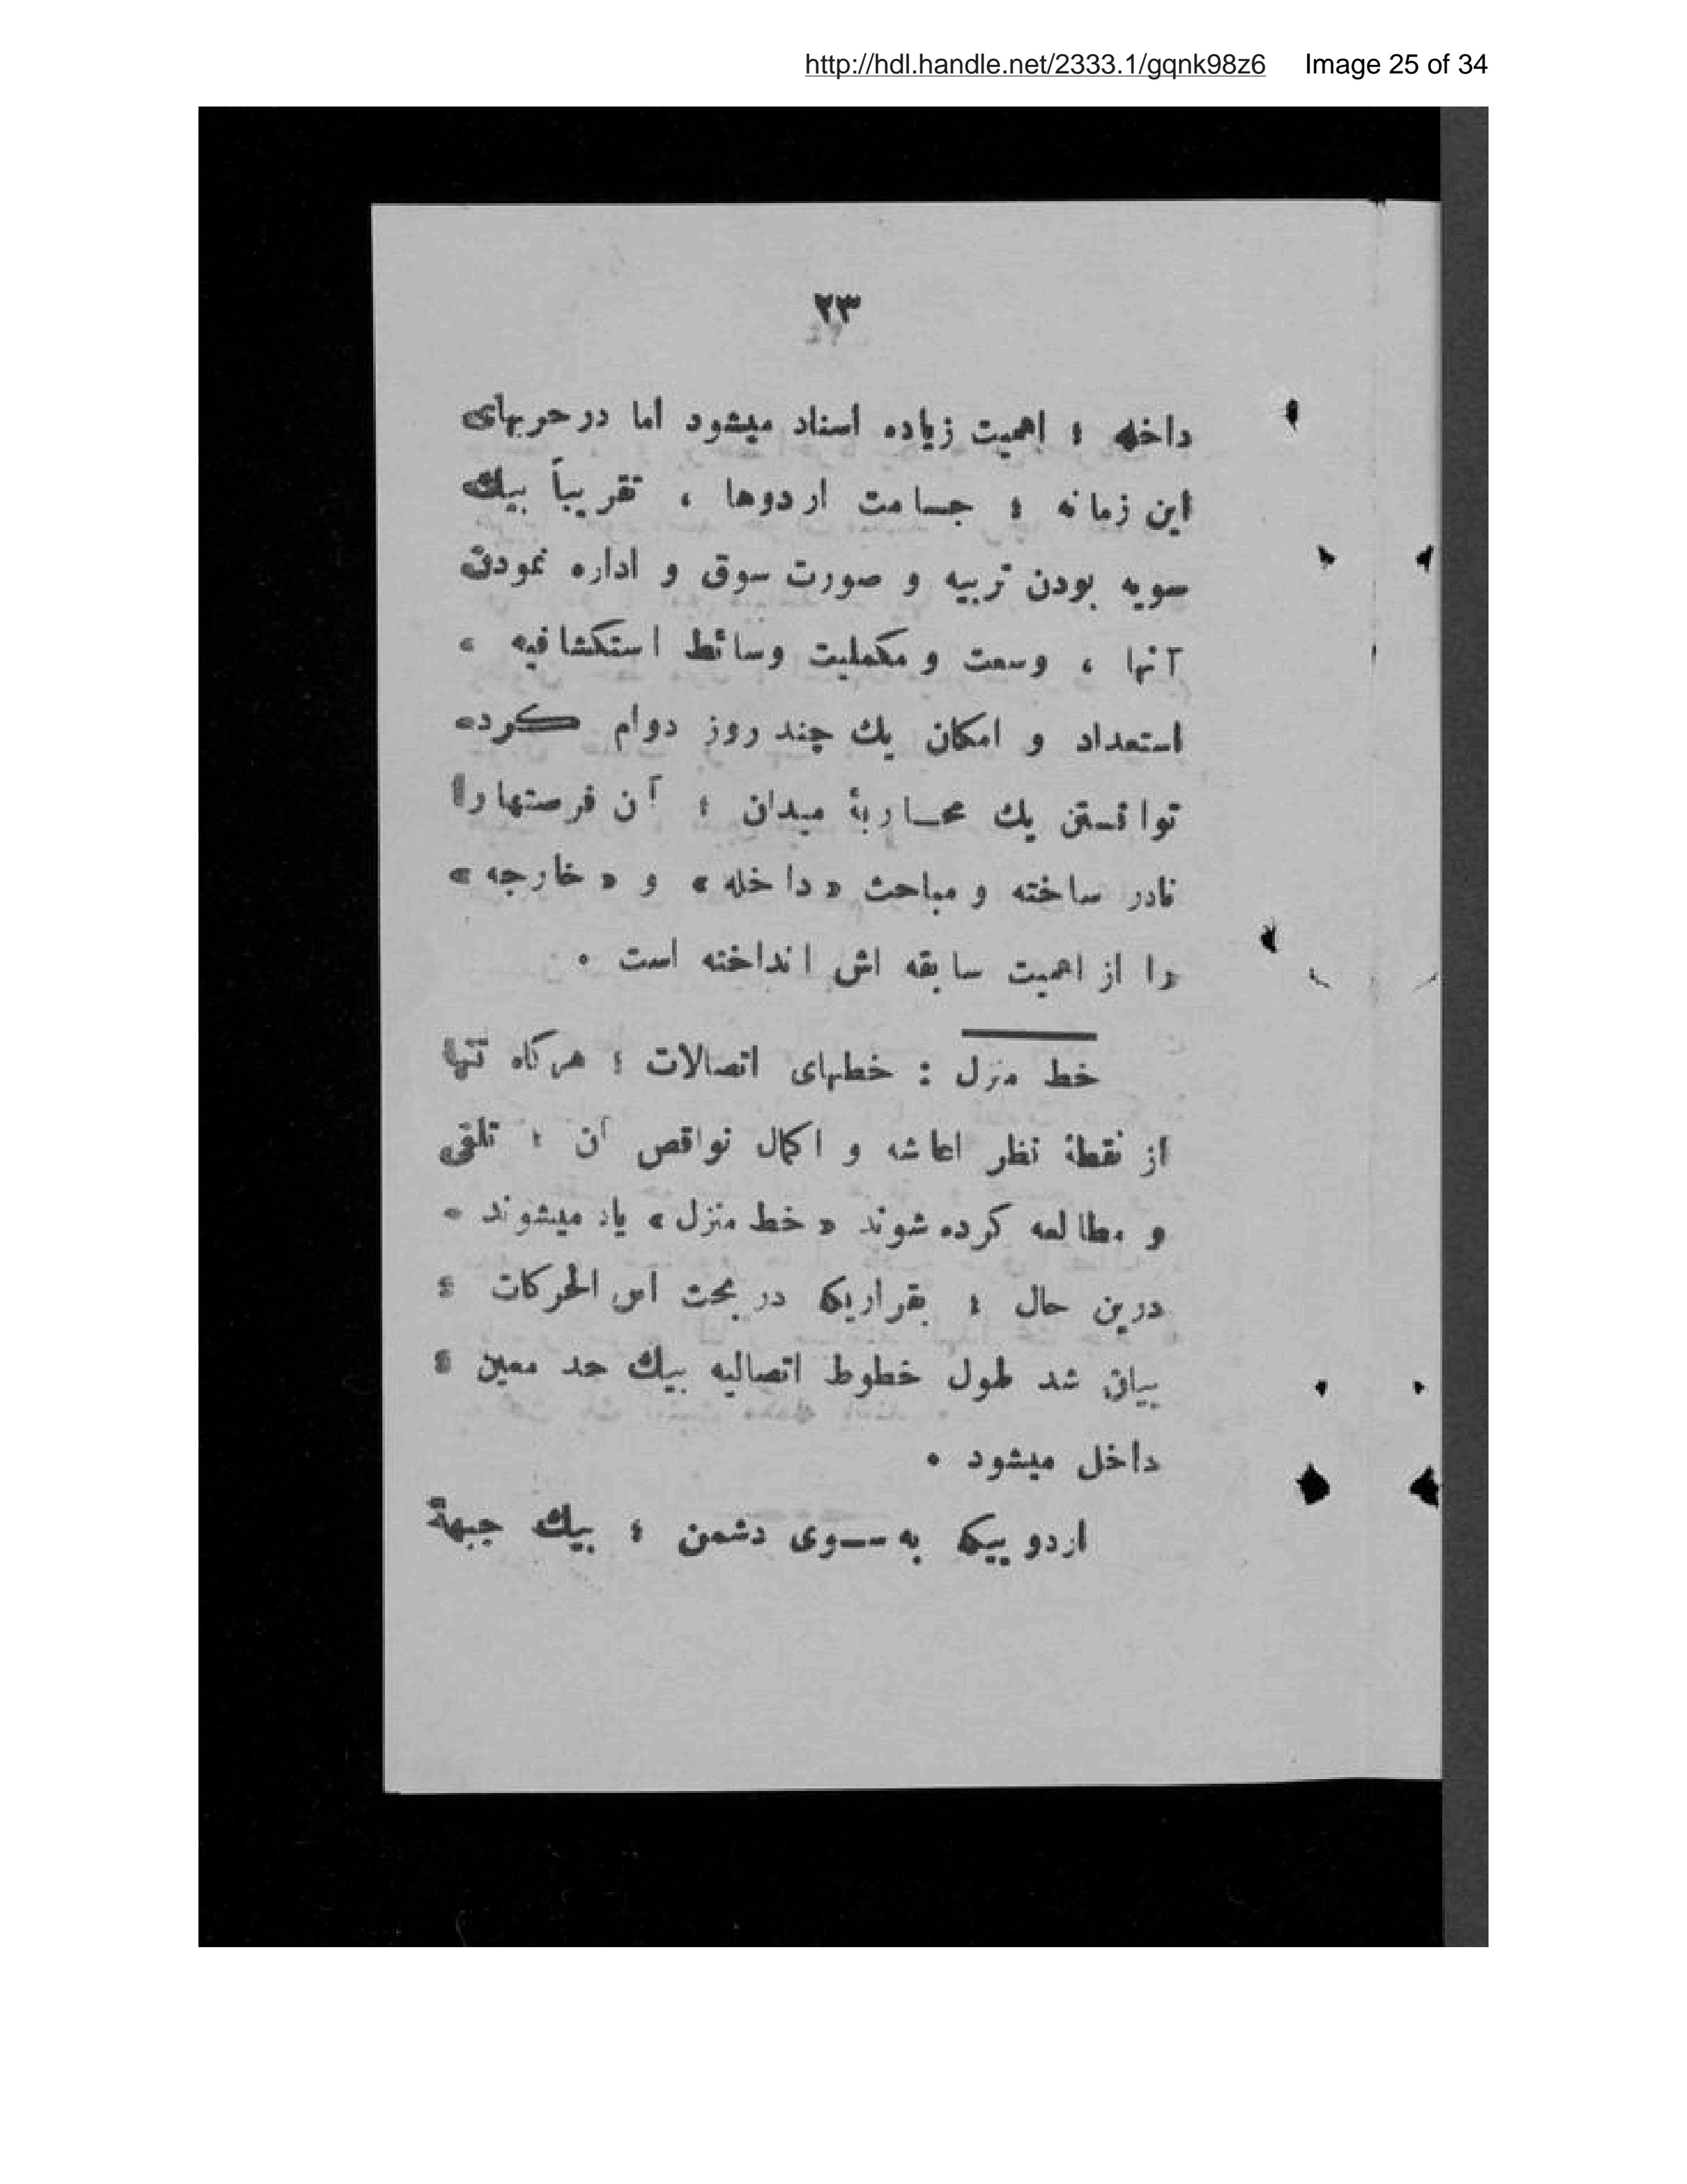 http://hdl.handle.net/2333.1/gqnk98z6 Image 25 of 34
۲۳
داخله ؛ اهمیت زیاده اسناد میشود اما در حربهای
این زمانه ؛ جسامت اردوها ، تقریباً بیك
سویه بودن تربیه و صورت سوق و اداره نمودن
آنها ، وسعت و مکملیت وسائط استکشافیه ،
استعداد و امکان یك چند روز دوام کرده
توانستن یك محاربۀ میدان ؛ آن فرصتهارا
نادر ساخته و مباحث « داخله » و « خارجه »
را از اهمیت سابقه اش انداخته است .
خط منزل : خطهای اتصالات ؛ هرکاه تنها
از نقطۀ نظر اعاشه و اکمال نواقص آن ؛ تلقی
و مطالعه کرده شوند « خط منزل » یاد میشوند .
درین حال ؛ بقراریکه در بحث اس الحرکات ؛
بیان شد طول خطوط اتصالیه بیك حد معین ؛
داخل میشود .
اردوییکه به ســوی دشمن ؛ بیك جبهۀ